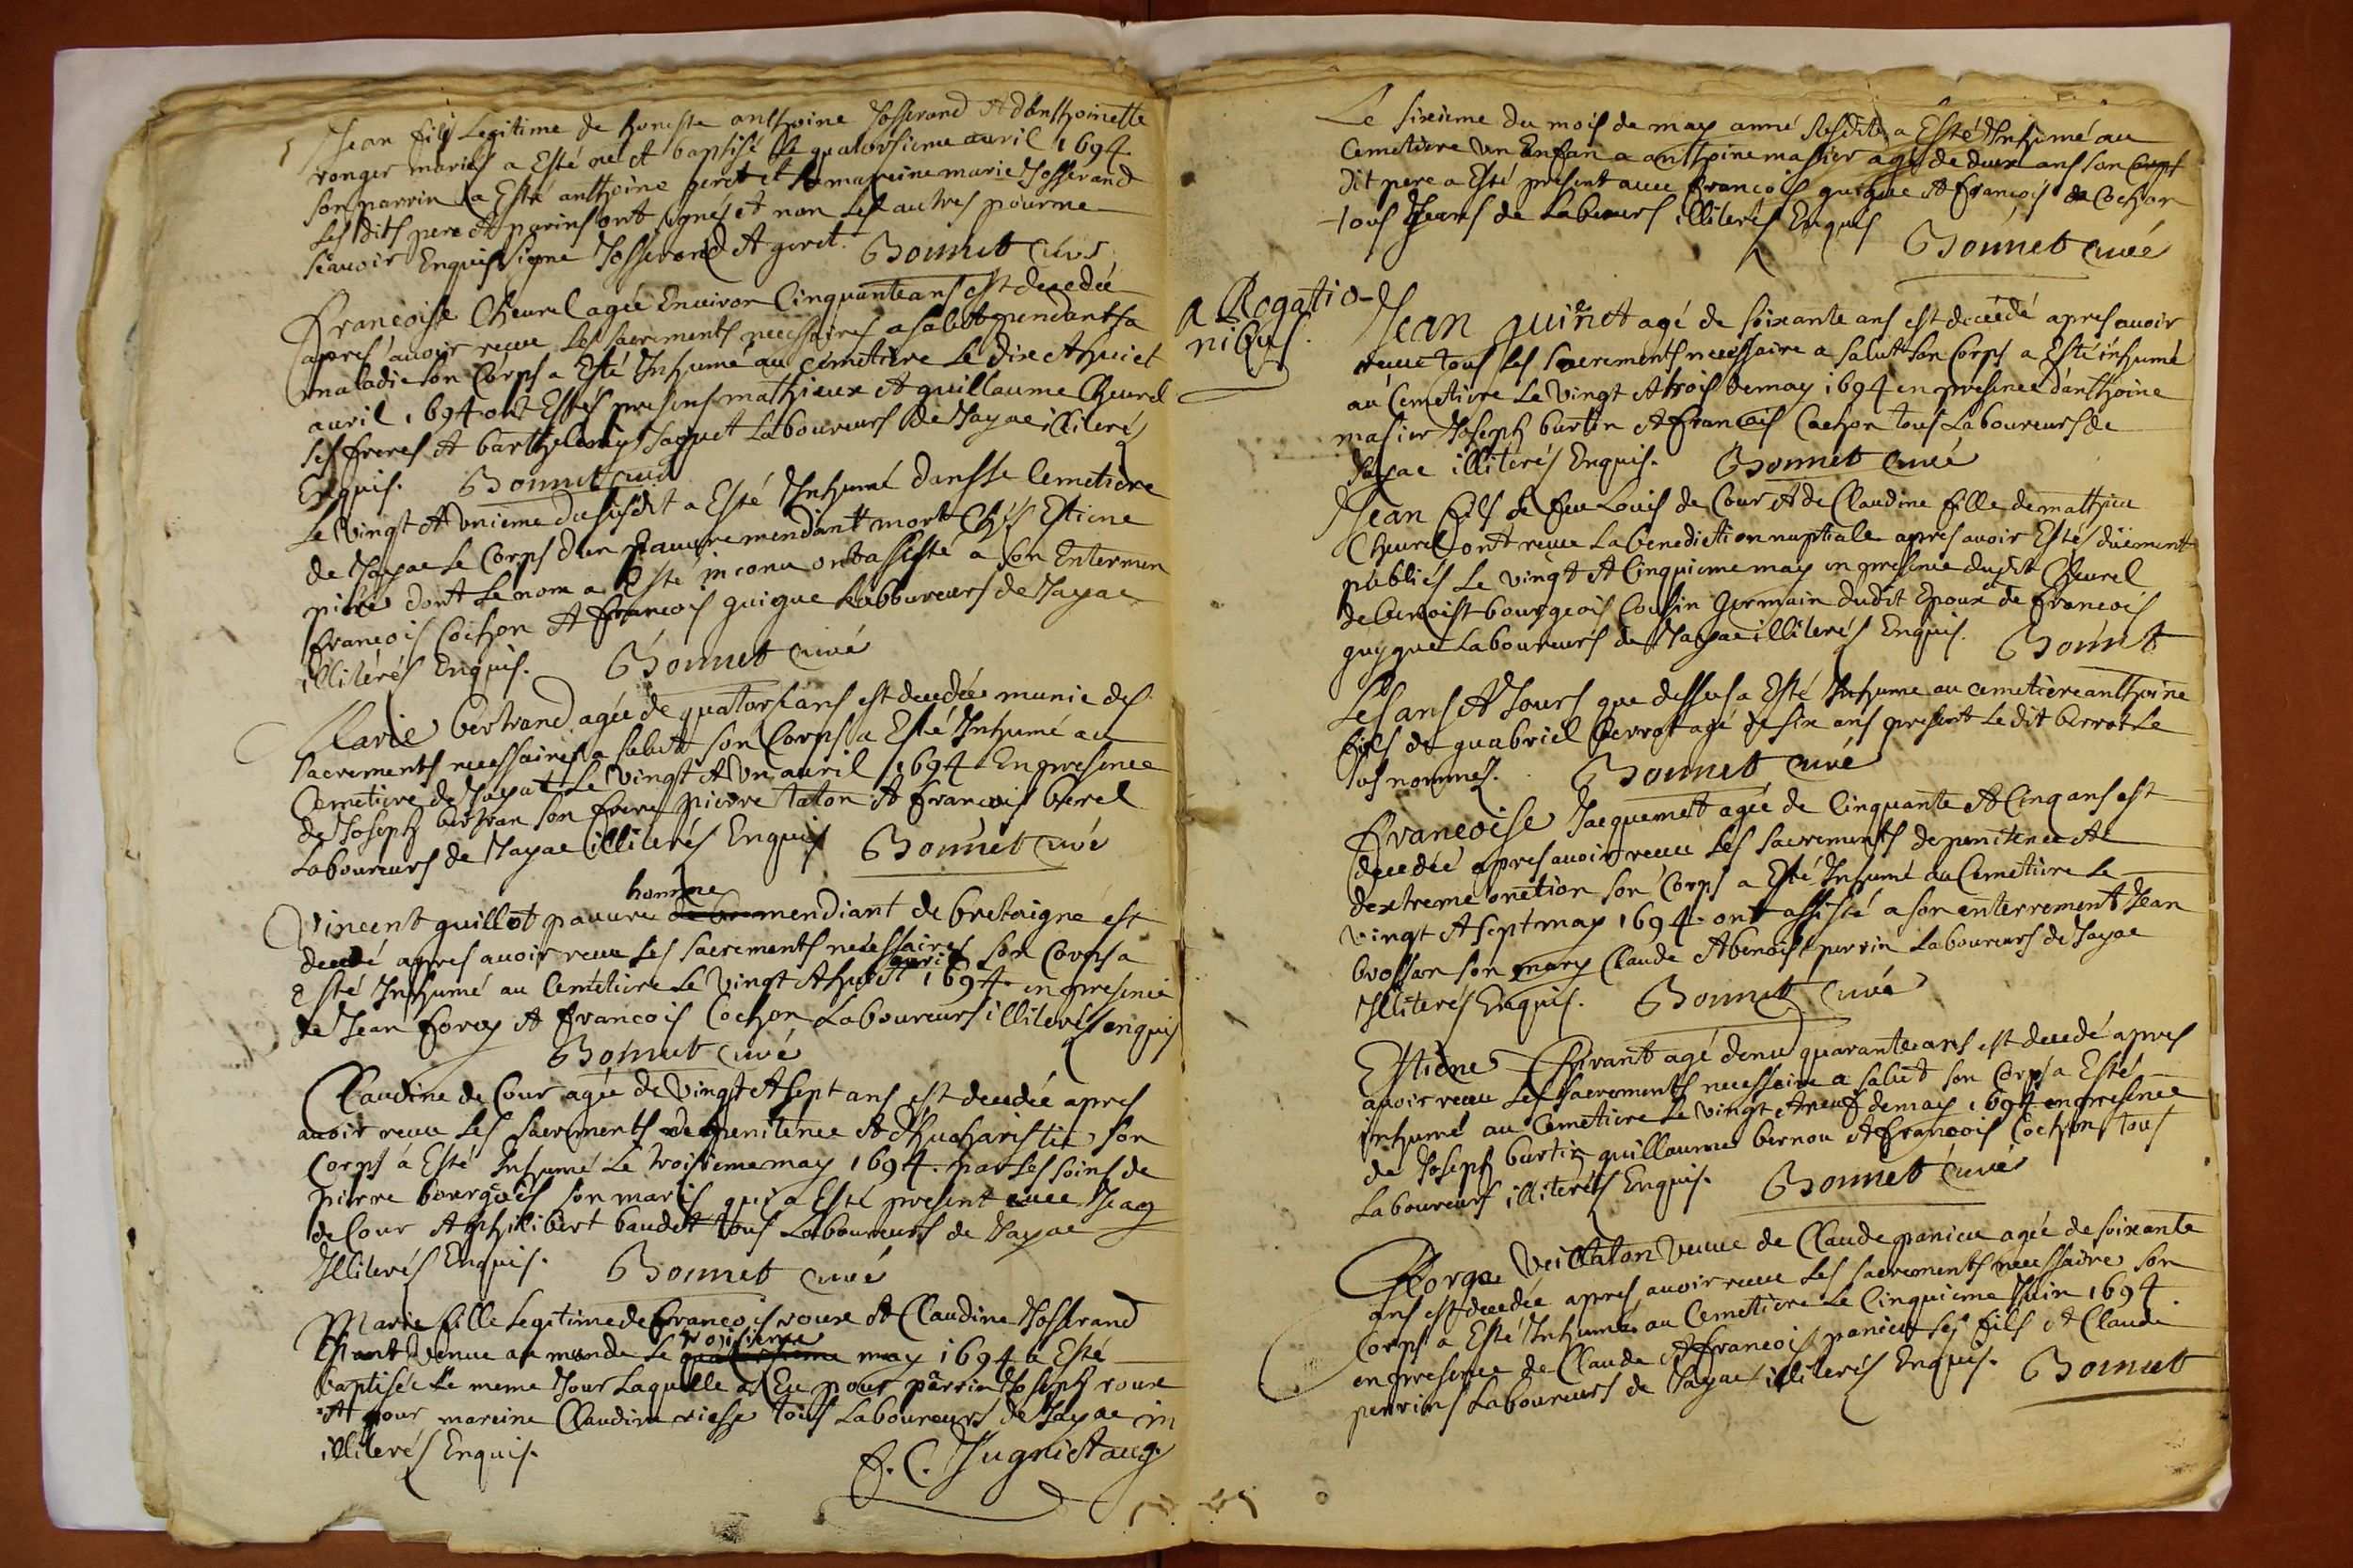 Jean fils Legitime de honeste anthoine Josserand et danthoinette
ronger mariés a Esté né et baptisé le quatorsieme auril 1694
son parrin a Esté anthoine peret et sa mareine marie Josserand
Les dits pere et parins ont signés et non Les autres pour me
scauoir Enquis signe Josserand et peret. Bonnet curé
Francoise Cheurel agée Enuiron Cinquante ans est decedée
apres auoir receu Les sacrements necessaires a salut pendant sa
maladie son Corps a Esté Inhumé au cemetiere Le dix et huict
auril 1694 ont Estés presens mathieux et guillaume Cheurel
ses freres et barthelemy Jaquet Laboureurs de Jayac illiterés
Enquis. Bonnet curé
Le vingt et unieme du susdit a Esté Inhumé dans le Cemetiere
de Jayac Le Corps d'un pauure mendiant mort Chés Estiene
dont Le nom a Esté inconu ont assisté a son Enterrmen
francois Cochon et francois guigue Laboureurs de Jayac
illiterés Enquis. Bonnet curé
Marie bertrand agée de quatorse ans est decedée munie des
sacrements necessaires a salut son Corps a Esté Inhumé au
Cemetiere de Jayat Le vingt et un auril 1694 En presence
de Joseph bertran son frere pierre taton et francois berel
Laboureurs de Jayac illiterés Enquis Bonnet curé
homme
Vincent guillot pauure mendiant de bretaigne est
decedé apres auoir receu Les sacrements necessaires son Corps a
auril
Esté Inhumé au Cemetiere Le vingt et huict 1694 en presence
de Jean forey et francois Cochon Laboureurs illiterés enquis
Bonnet curé
Claudine de Cour agée de vingt et sept ans est decedée apres
auoir receu Les sacrements de penitence et dhucharistie son
Corps a Esté Inhumé Le troisieme may 1694. par Les soins de
pierre bourgeois son maris qui a Esté present auec Jean
de Cour et philibert baudet tous Laboureurs de Jayac
Illiterés Enquis. Bonnet curé
Marie fille Legitime de francois roux et Claudine Josserand
troisieme
Estant venue au monde Le quatorsieme may 1694 a Esté
baptisée Le meme Jour Laquelle a Eu pour parrin Joseph roux
et pour mareine Claudine tous Laboureurs de Jayac in
illiterés Enquis.
f. C. Jugnist aug.
Le sixieme du mois de may anné susdite a Esté Inhumé au
Cemetiere un Enfan a anthoine masier agé de deux ans son
dit pere a Esté present auec francois guigue et francois de Cochon
tous Jeans de Labeurs illiterés Enquis
Bonnet curé
a Rogatio-
nibus.
Jean guinet agé de soixante ans est decédé apres auoir
receu tous Les sacrements necessaire a salut son Corps a Esté inhumé
au Cemetiere Le vingt et trois de may 1694 en presence d'anthoine
masier Joseph burtin et francois Cochon tous Laboureurs de
Jayac illiterés Enquis. Bonnet curé
Jean fils de feu Louis de Cour et de Claudine fille de matthieu
Cheurel ont receu La benediction nuptiale apres auoir Estés düement
publiés Le vingt et Cinquieme may en presence dudit Cheurel
de benoist bourgeois Cousin Germain dudit Epoux et de francois
guygue Laboureurs de Jayac illiterés Enquis. Bonnet
Les ans et Jours que dessus a Esté Inhumé au cemetiere anthoine
fils de guabriel berrot agé de six ans present Le dit berrot Le
sus nommez. Bonnet curé
Francoise Jaequemet agée de Cinquante et Cinq ans est
decedée apres auoir receu Les sacrements de penitence et
dextreme onction son Corps a Esté Inhumé au Cemetiere Le
vingt et sept may 1694. ont assisté a son enterrement Jean
brossan son mary Claude et benoist perrin Laboureurs de Jayac
Illiterés Enquis. Bonnet Curé
Estiene agé quarante ans est decedé apres
auoir receu Les sacrements necessaire a salut son Corps a Esté
inhumé au Cemetiere Le vingt et neuf de may 1694 en presence
de Joseph burtin guillaume bernou et francois Cochon tous
Laboureurs illiterés Enquis. Bonnet curé
veillaton veuue de Claude panieu agée de soixante
ans est decedée apres auoir receu Les sacrements necessaires son
Corps a Esté Inhumé au Cemetiere Le Cinquieme Juin 1694
en presence de Claude et francois panieu ses fils et Claude
perrins Laboureurs de Jayac illiterés Enquis. Bonnet